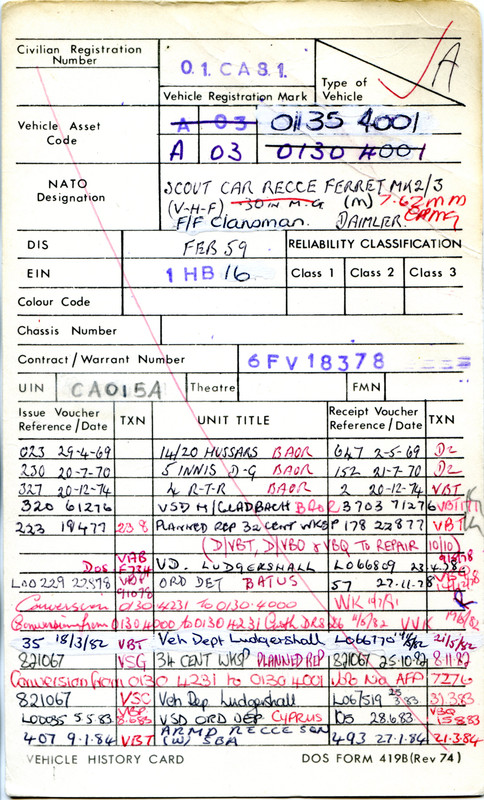 Civilian Registration Number
01.CA81.
A
Type of Vehicle
Vehicle Registration Mark
Vehicle Asset Code
A 03 0135 4001
A 03 0130 4001
NATO Designation
SCOUT CAR RECCE FERRET MK2/3
(V-H-F) 30 IN M.G (M) 7.62 MM GPMG
F/F Clansman. DAIMLER.
DIS FEB 59 RELIABILITY CLASSIFICATION
EIN 1 HB 16 Class 1 Class 2 Class 3
Colour Code
Chassis Number
Contract/Warrant Number 6FV18378
UIN CA015A Theatre FMN
Issue Voucher Reference/Date TXN UNIT TITLE Receipt Voucher Reference/Date TXN
023 29-4-69 14/20 HUSSARS BAOR 647 2-5-69 DZ
230 20-7-70 5 INNIS D-G BAOR 152 21-7-70 DZ
327 20-12-74 4 R-T-R BAOR 2 20-12-74 VBT
320 61276 VSD M/GLADBACH BAOR 3703 71276 VBT
223 18477 PLANNED REP 32 CENT WKSP 178 22877 VBT
(D/VBT, D/VBO & VBQ TO REPAIR 10/10)
DOS VAB VD. LUDGERSHALL L066809
L00229 22878 ORD DET BATUS 57 27-11-78
Conversion 0130 4231 TO 0130.4000
Conversion from 0130 4000 to 0130 4231 VVK
35 18/3/82 VBT Veh Dept Ludgershall L066770 21/5/82
821067 VSG 34 CENT WKSP PLANNED REP 821067 25.10.82 8.11.82
Conversion from 0130 4231 to 0130 4001 AFP 7276
821067 VSC Veh Dep Ludgershall L067519 31.3.83
L00035 5.5.83 8.6.83 VSD ORD DEP CYPRUS 105 28.6.83 VBQ 15.8.83
407 9.1.84 VBT ARMD RECCE SQN (W) SBA 493 27.1.84 21.3.84
VEHICLE HISTORY CARD DOS FORM 419B (Rev 74)